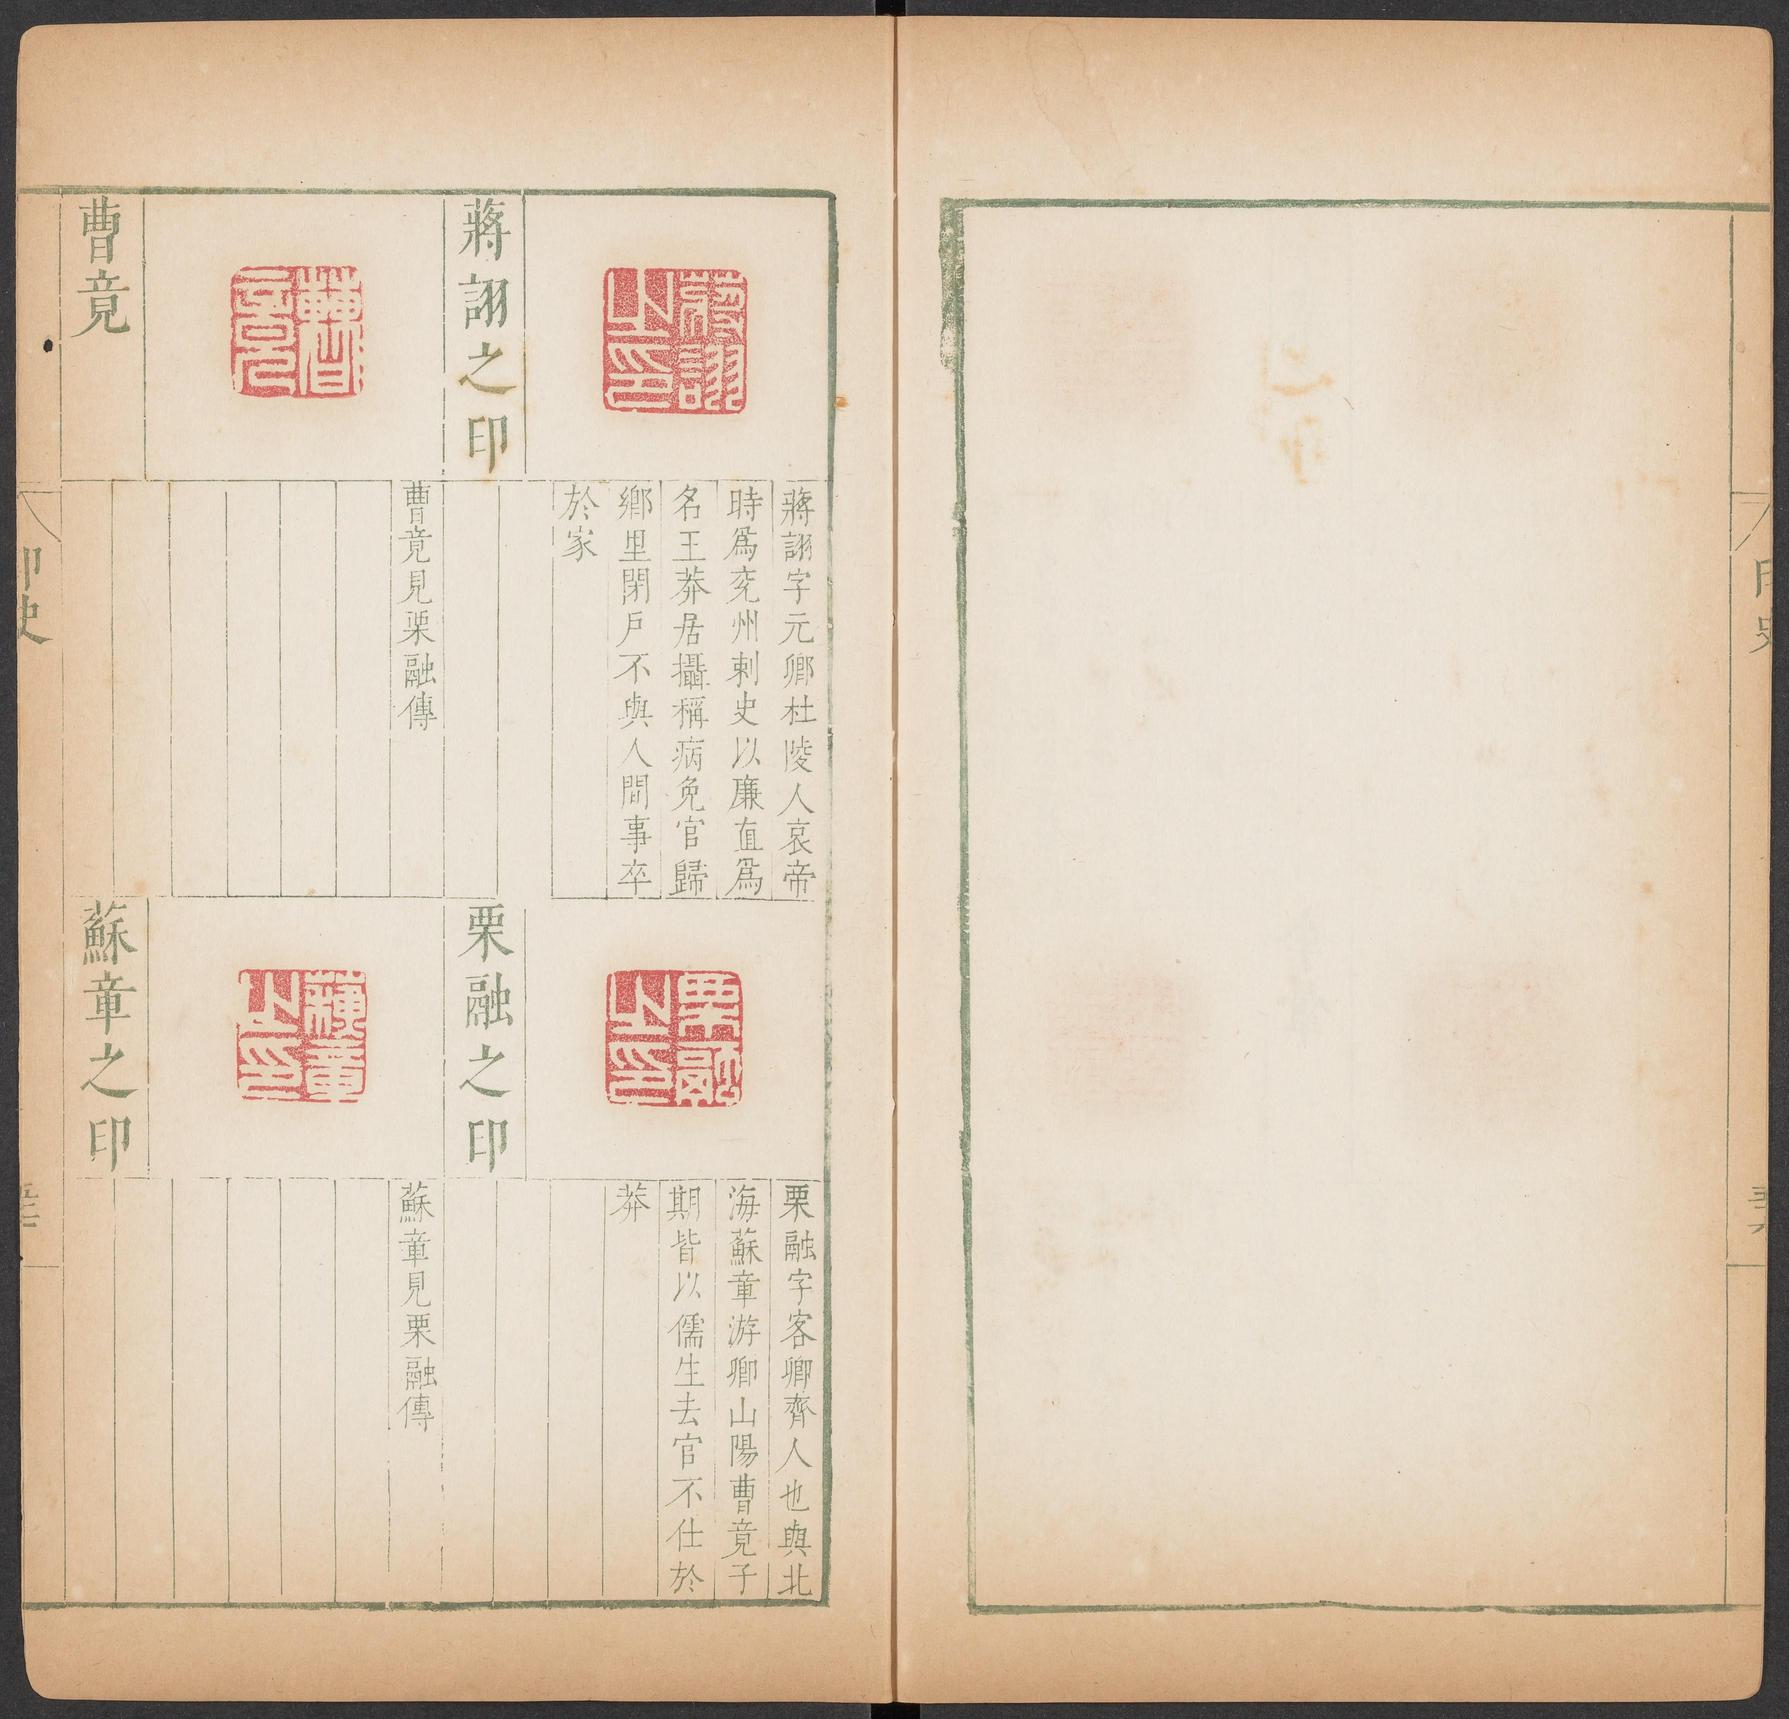 蔣詡之印
蔣詡字元卿杜陵人哀帝
時爲兖州刺史以廉直爲
名王莽居攝稱病免官歸
鄉里閉戶不與人間事卒
於家
曹竟
曹竟見栗融傳
栗融之印
栗融字客卿齊人也與北
海蘇章游卿山陽曹竟子
期皆以儒生去官不仕於
莽
蘇章之印
蘇章見栗融傳
印史